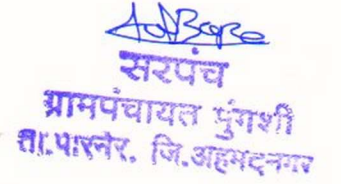 सरपंच
ग्रामपंचायत पुंगशी
ता.पारनेर. जि.अहमदनगर